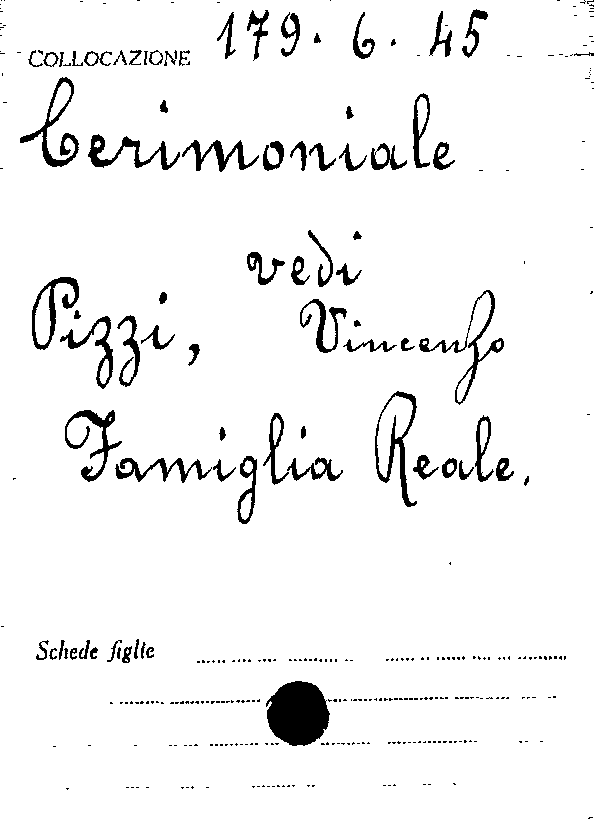 COLLOCAZIONE 179. 6. 45
Cerimoniale
vedi
Pizzi, Vincenzo
Famiglia Reale.
Schede figlie